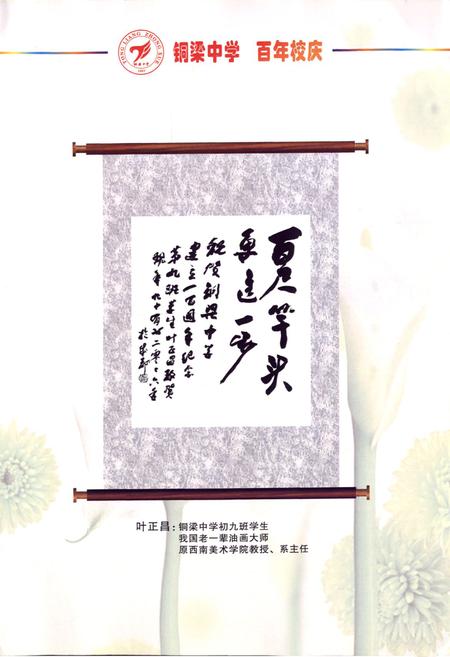 TONG LIANG ZHONG XUE
铜梁中学
铜梁中学 百年校庆
百尺竿头
更进一步
祝贺铜梁中学
建立一百周年纪念
第九班学生叶正昌敬贺
二零零六年
叶正昌：铜梁中学初九班学生
我国老一辈油画大师
原西南美术学院教授、系主任